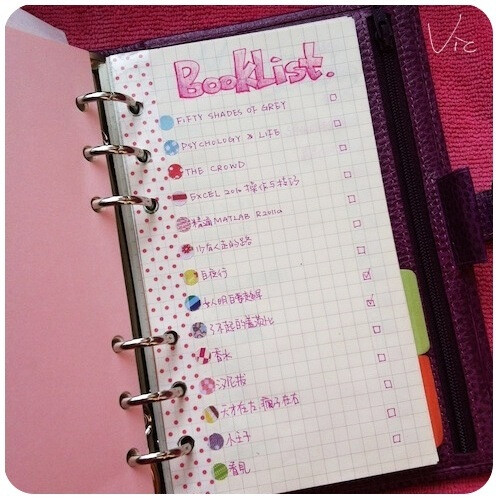 Vic
BookList.
FIFTY SHADES OF GREY
PSYCHOLOGY & LIFE
THE CROWD
EXCEL 2010 操作与技巧
精通MATLAB R2011a
少有人走的路
白夜行
女人明白要趁早
了不起的盖茨比
香水
沉沦
天才在左 疯子在右
小王子
看见